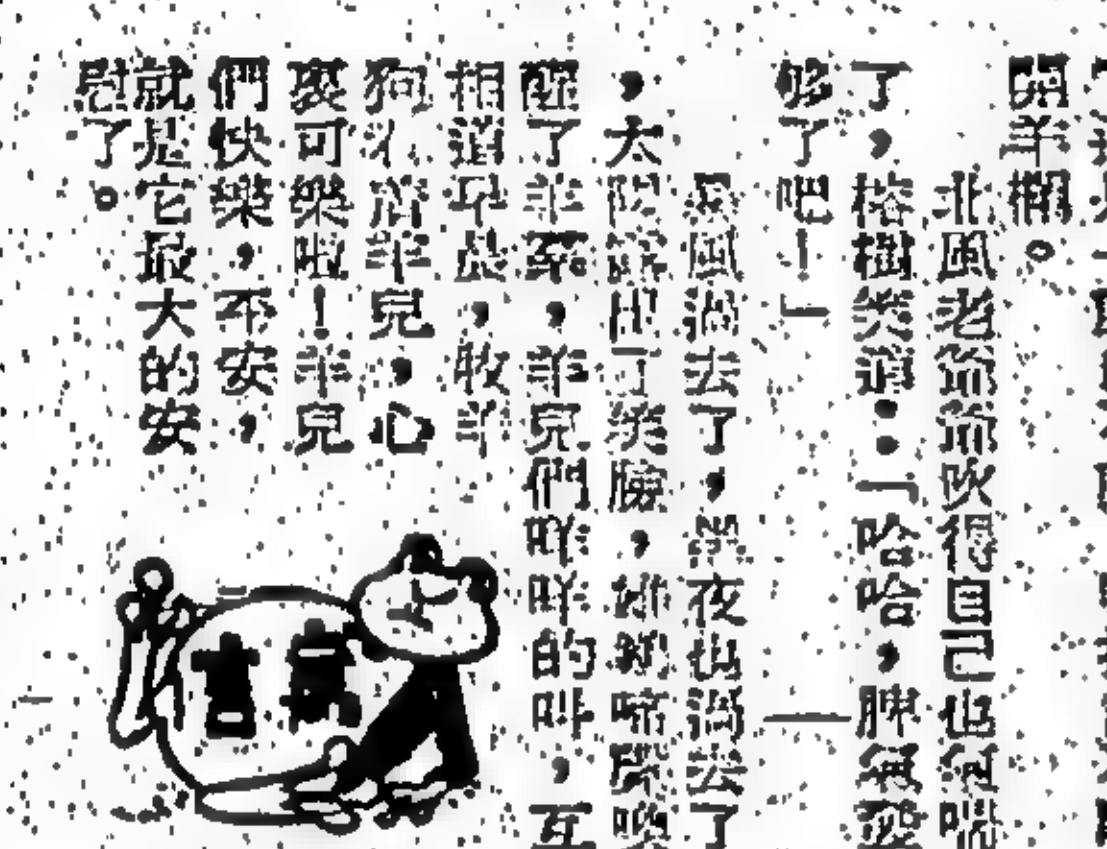 開羊欄。
北風老爺爺吹得自己也氣喘
了，榕樹笑道：「哈哈，脾氣發
够了吧！」
暴風過去了，黑夜也過去了
，太陽露出了笑臉，雄鷄啼聲喚
醒了羊羣，羊兒們咩咩的叫，互
相道早晨，牧羊
狗看着羊兒，心
裏可樂啦！羊兒
們快樂，不安，
就是它最大的安
慰了。